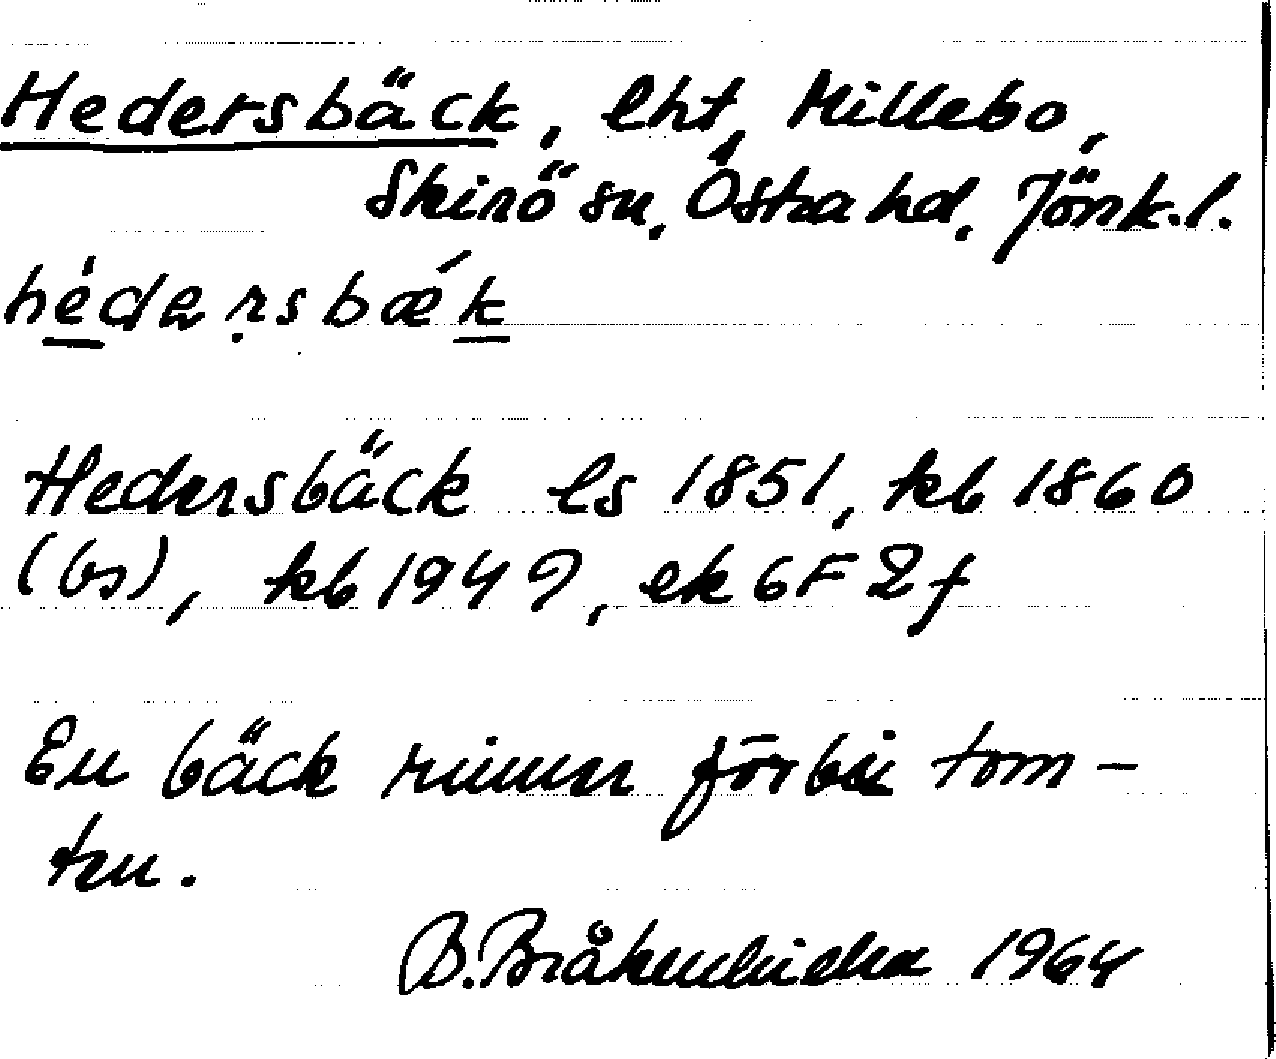 Hedersbäck, lht, Millebo,
Skirö sn, Östra hd, Jönk.l.
hédeṛsbæ´k
Hedersbäck ls 1851, kb 1860
(bs), kb 1949, ek 6F2f
En bäck rinner förbi tom-
ten.
B. Bråkenhielm 1964